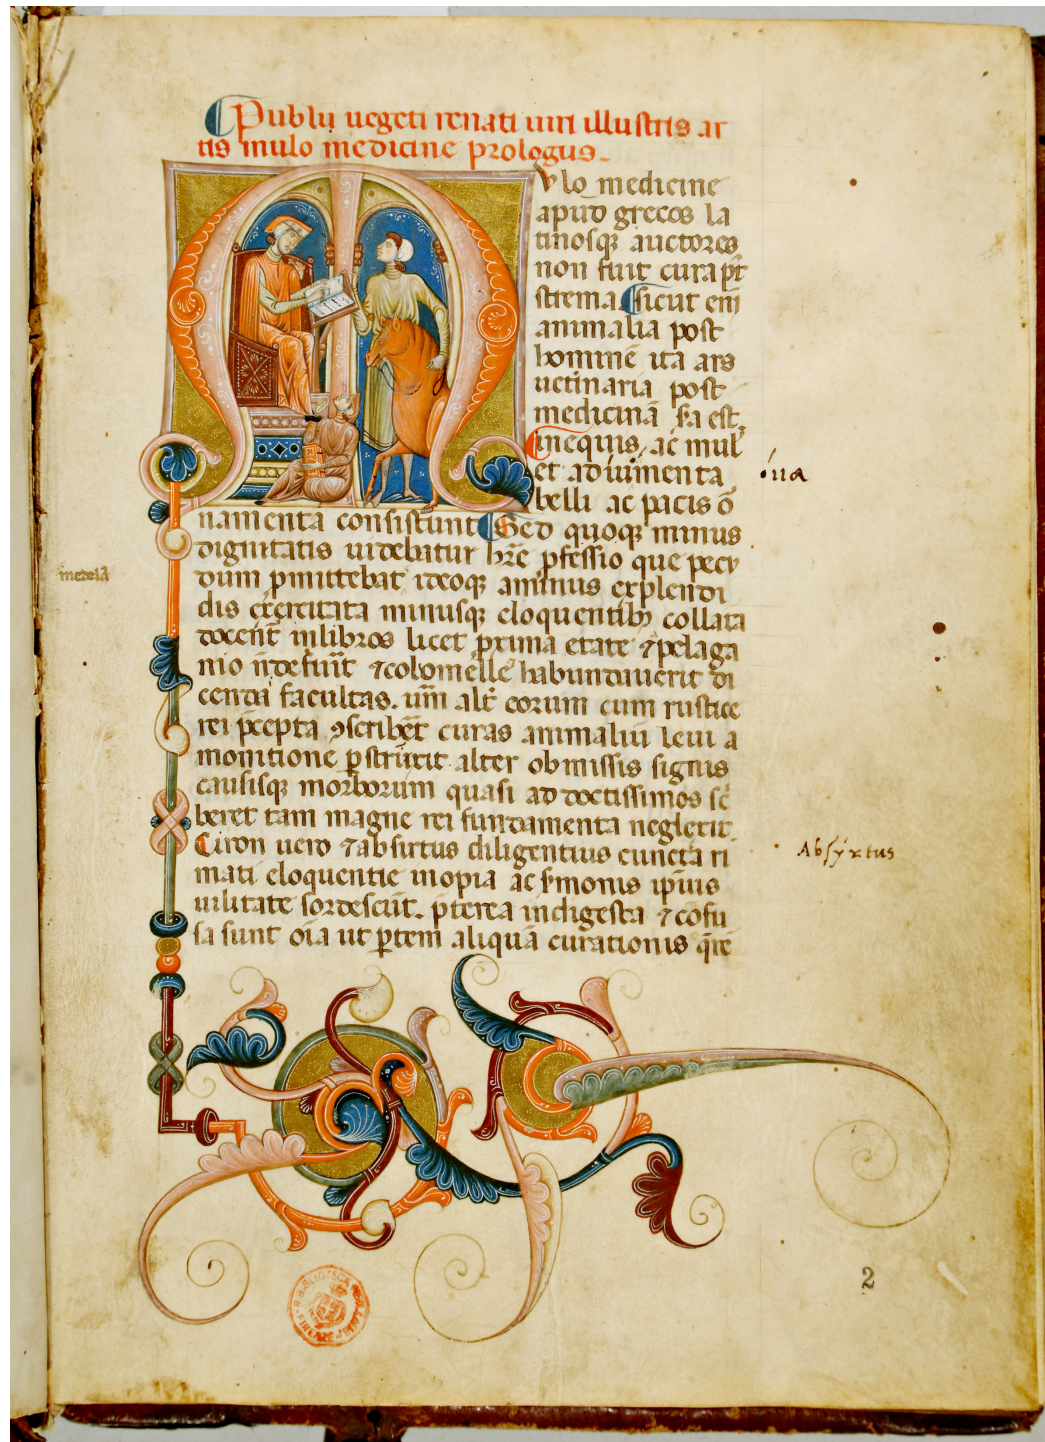 Publii uegeti renati uiri illustris ar
tis mulo medicine prologus.
Vlo medicine
apud grecos la
tinosq; auctores
non fuit cura pt
strema Sicut eni
animalia post
hominē ita ars
uetinaria post
medicinā sa est.
inequis. ac mul
et adiumenta
ria
belli ac pacis o
namenta consistunt Sed quoq; minus
dignitatis uidebatur hr̄e pfessio que pecu
medelā
dum pmittebat ideoq; aminus explendi
dis exercitata minusq; eloquentib; collata
docent̄ inlibros licet pxima etate ⁊ pelago
nio n̄ defuit ⁊ colomelle habundauerit di
cendi facultas. um̄ alt̄ eorum cum rustice
rei pcepta ꝯscriberet curas animaliū leui a
monitione pstrinxit alter obmissis signis
causisq; morborum quasi ad doctissimos sc̄
beret tam magne rei fundamenta neglexit.
Ciron uero ⁊ absirtus diligentius cuncta ri
Absyrtus
mati eloquentie inopia ac smonis ipsius
uilitate sordescūt. pterea indigesta ⁊ cōfu
sa sunt oīa ut ptem aliquā curationis q̄re
BIBLIOTECA
FIRENZE
2